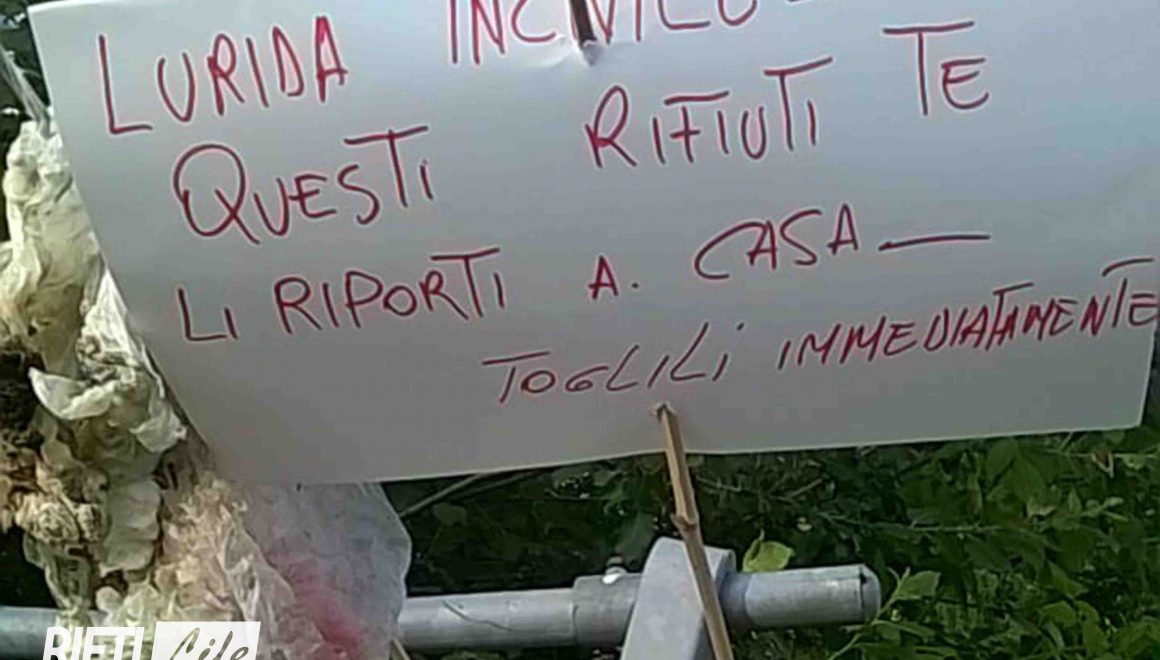 LURIDA
QUESTI RIFIUTI TE
LI RIPORTI A. CASA —
TOGLILI IMMEDIATAMENTE
RIETI Life